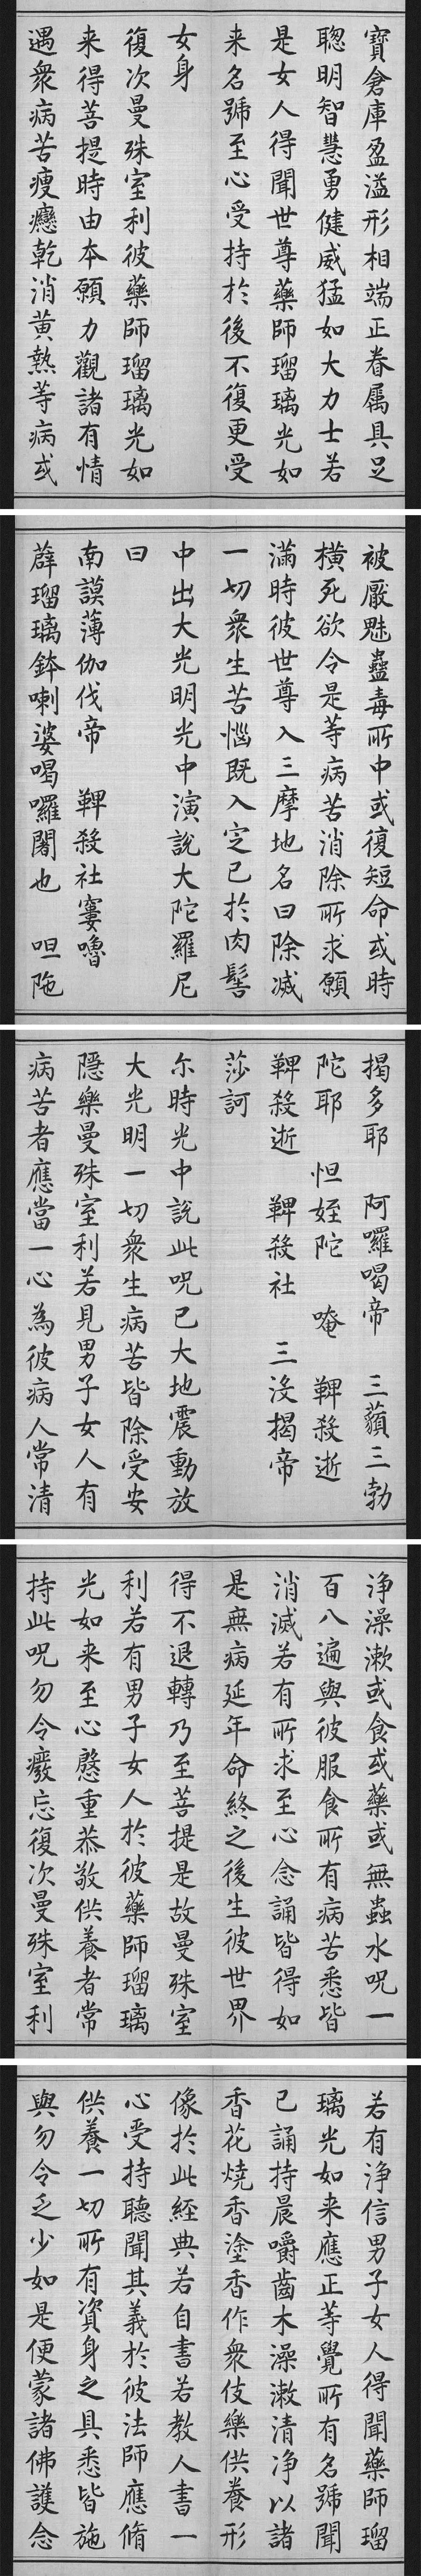 寶倉庫盈溢形相端正眷属具足
聦明智慧勇健威猛如大力士若
是女人得聞世尊藥師瑠璃光如
来名號至心受持於後不復更受
女身
復次曼殊室利彼藥師瑠璃光如
来得菩提時由本願力觀諸有情
遇衆病苦瘦癴乾消黄熱等病或
被厭魅蠱毒所中或復短命或時
橫死欲令是等病苦消除所求願
滿時彼世尊入三摩地名曰除滅
一切衆生苦惱既入定已於肉髻
中出大光明光中演說大陀羅尼
曰
南謨薄伽伐帝　鞞殺社窶嚕
薜瑠璃鉢喇婆喝囉闍也　呾陁
揭多耶　阿囉喝帝　三藐三勃
陀耶　怛姪陀　唵　鞞殺逝
鞞殺逝　鞞殺社　三沒揭帝
莎訶
尒時光中說此呪已大地震動放
大光明一切衆生病苦皆除受安
隱樂曼殊室利若見男子女人有
病苦者應當一心為彼病人常清
浄澡漱或食或藥或無蟲水呪一
百八遍與彼服食所有病苦悉皆
消滅若有所求至心念誦皆得如
是無病延年命終之後生彼世界
得不退轉乃至菩提是故曼殊室
利若有男子女人於彼藥師瑠璃
光如来至心慇重恭敬供養者常
持此呪勿令癈忘復次曼殊室利
若有浄信男子女人得聞藥師瑠
璃光如来應正等覺所有名號聞
已誦持晨嚼齒木澡漱清浄以諸
香花燒香塗香作衆伎樂供養形
像於此經典若自書若教人書一
心受持聽聞其義於彼法師應脩
供養一切所有資身之具悉皆施
與勿令乏少如是便蒙諸佛護念